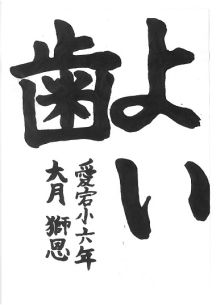 よい
歯
愛宕小六年
大月獅恩